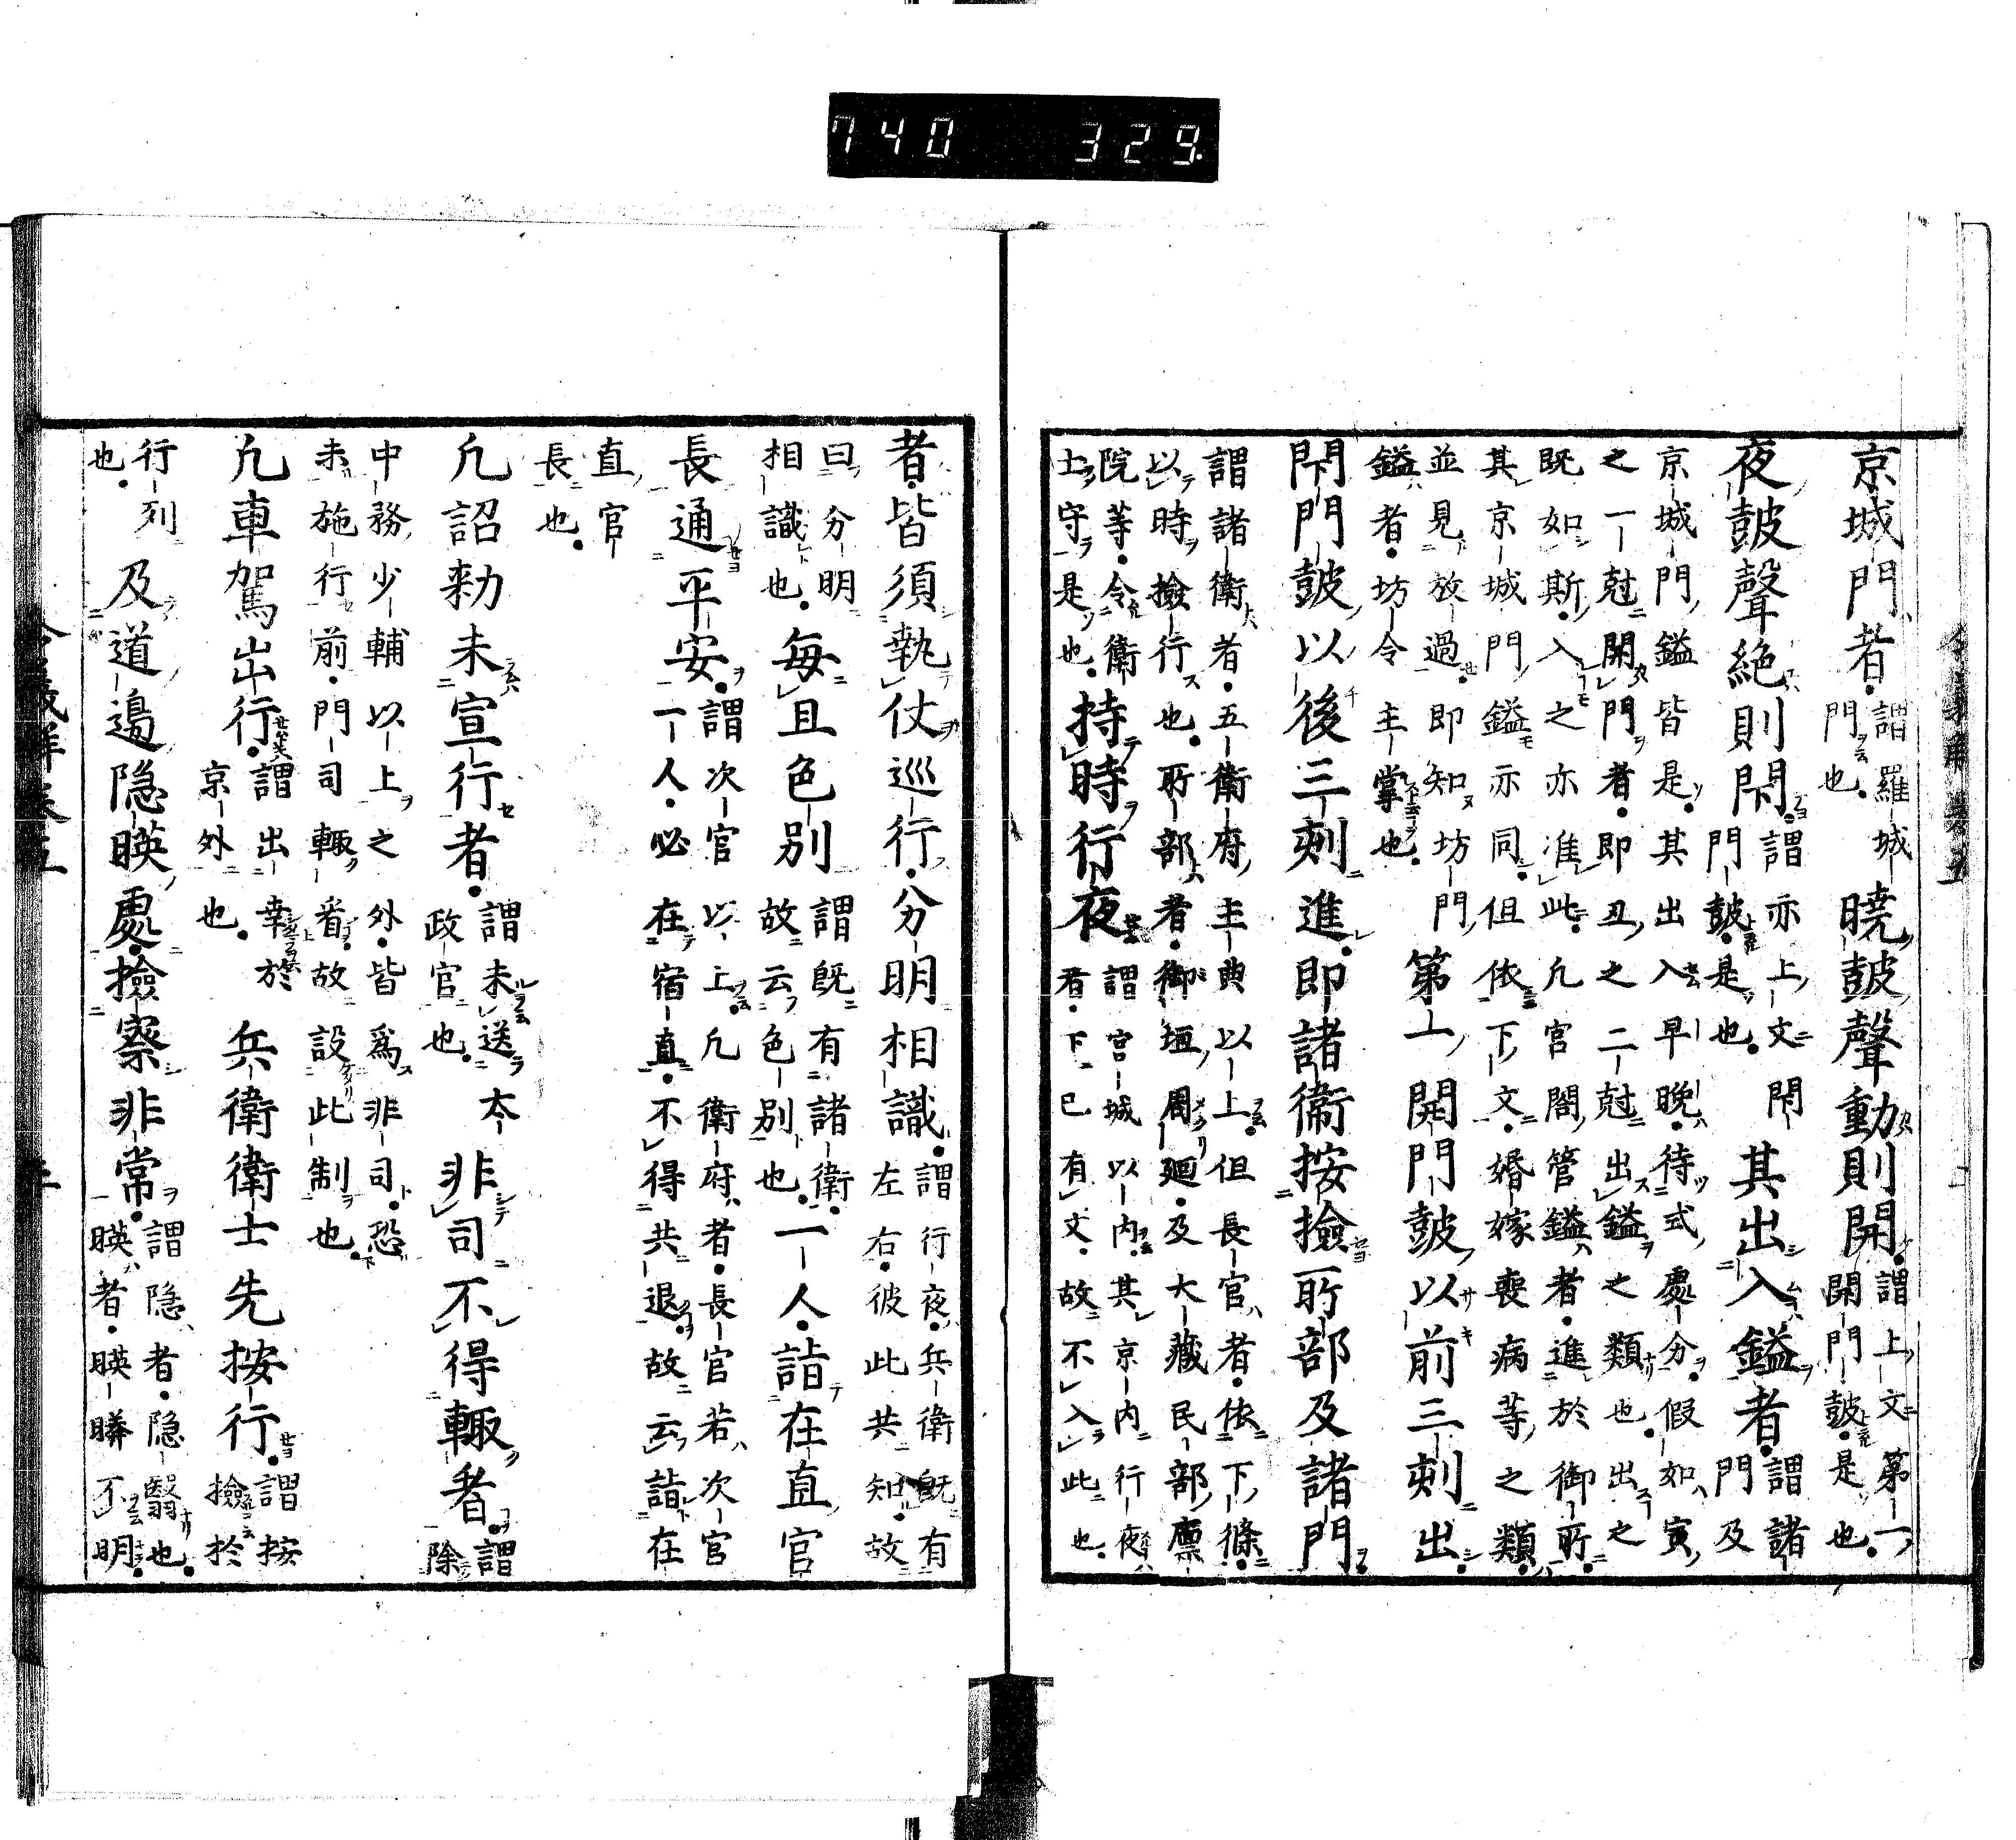 740 329.
京城門者。謂羅城門也。曉皷聲動則開。謂上文第一開門皷是也。
夜皷聲絶則閇。謂亦上文閇門皷是也。其出入鎰者。謂諸門及
京城門鎰皆是。其出入早晚。待式處分。假如寅
之一尅開門者。即丑之二尅出鎰之類也。出之
既如斯。入之亦准此。凢宮閤管鎰者。進於御所。
其京城門鎰亦同。但依下文。婚嫁喪病等之類。
並見放過。即知坊門
鎰者。坊令主掌也。第一開門皷以前三刾出。
閇門皷以後三刾進。即諸衛按撿所部及諸門。
謂諸衛者。五衛府主典以上。但長官者。依下條。
以時撿行也。所部者。御垣周廻。及大藏民部廪
院等。令衛
士守是也。持時行夜者。謂宮城以内。其京内行夜下已有文。故不入此也。
者。皆須執仗巡行。分明相識。謂行夜。兵衛既有左右。彼此共知。故
曰分明
相識也。毎旦色別謂既有諸衛。故云色別也。一人。詣在直官
長通平安。謂次官以上。凢衛府者。長官若次官一人。必在宿直。不得共退。故云詣在
直官
長也。
凢詔勅未宣行者。謂未送太政官也。非司不得輙者。謂除
中務少輔以上之外。皆爲非司。恐
未施行前。門司輙看。故設此制也。
凢車駕出行。謂出幸於京外也。兵衛衛士先按行。謂按撿於
行列
也。及道邊隠暎處。撿察非常。謂隠者。隠翳也。暎者。暎䁨不明。
令義解卷五